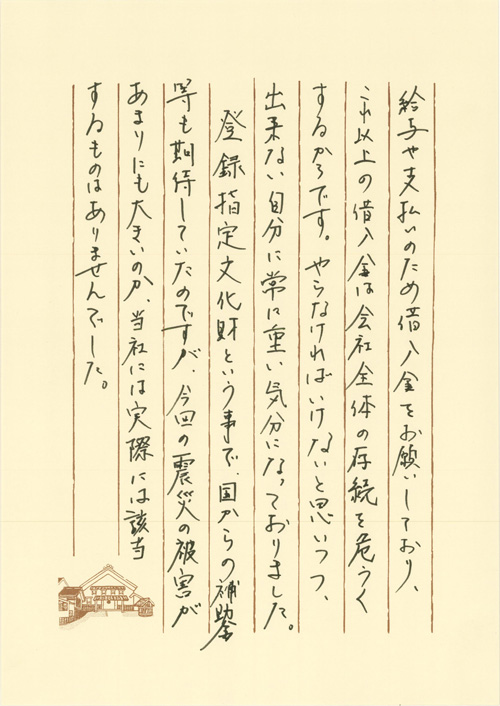 給与や支払いのため借入金をお願いしており、
これ以上の借入金は会社全体の存続を危うく
するからです。やらなければいけないと思いつつ、
出来ない自分に常に重い気分になっておりました。
登録指定文化財という事で、国からの補助金
等も期待していたのですが、今回の震災の被害が
あまりにも大きいのか、当社には実際には該当
するものはありませんでした。